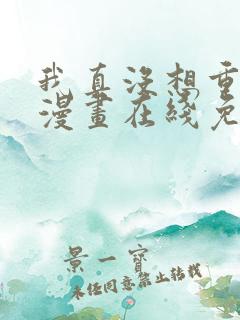 我真没想重
漫畫在綫免
景一寶
未经同意禁止转载